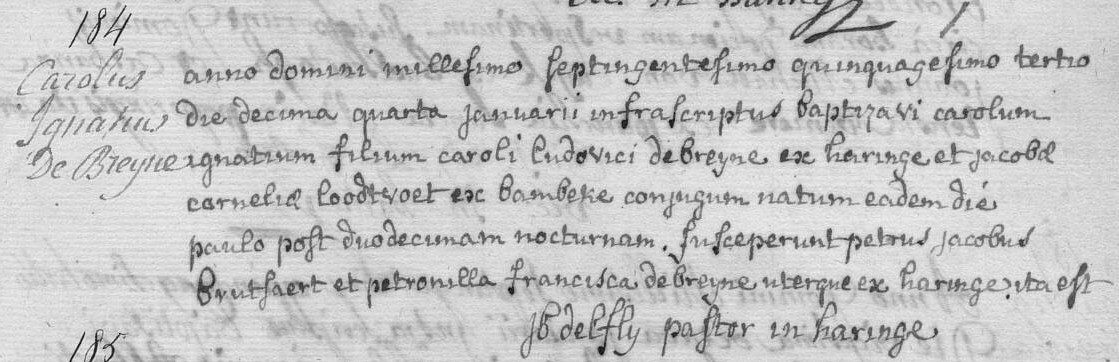 184
Carolus
Ignatius
De Breyne
anno domini millesimo septingentesimo quinquagesimo tertio
die decima quarta januarii infrascriptus baptizavi carolum
ignatium filium caroli ludovici debreyne ex haringe et jacobæ
corneliæ loodtvoet ex bambeke conjugum natum eadem die
paulo post duodecimam nocturnam. susceperunt petrus jacobus
brutsaert et petronilla francisca debreyne uterque ex haringe. ita est
JB delfly pastor in haringe
185